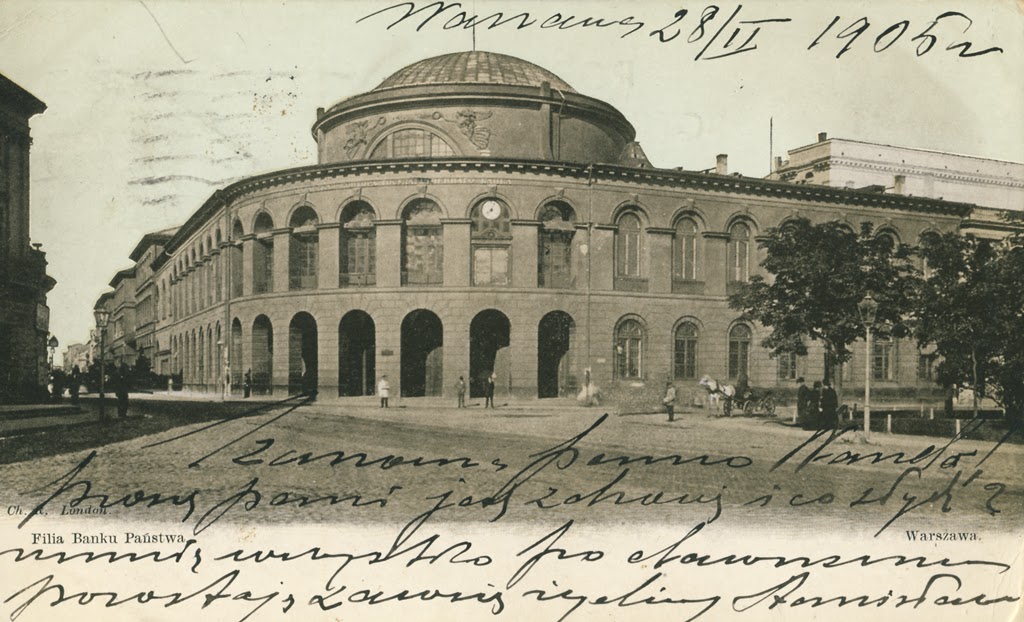 Warszawa 28/II 1905 r
Szanowna panno Wando!
proszę pani jak zdrowie i co słychać
Ch. R. London.
Filia Banku Państwa.
Warszawa.
u mnie wszystko po dawnemu
pozostaję zawsze życzliwy Stanisław